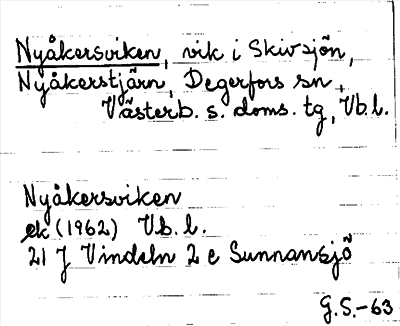 Nyåkersviken, vik i Skivsjön,
Nyåkerstjärn, Degerfors sn,
Västerb. s. doms. tg, Vb.l.
Nyåkersviken
ek (1962) Vb.l.
21 J Vindeln 2 e Sunnansjö
G.S.-63